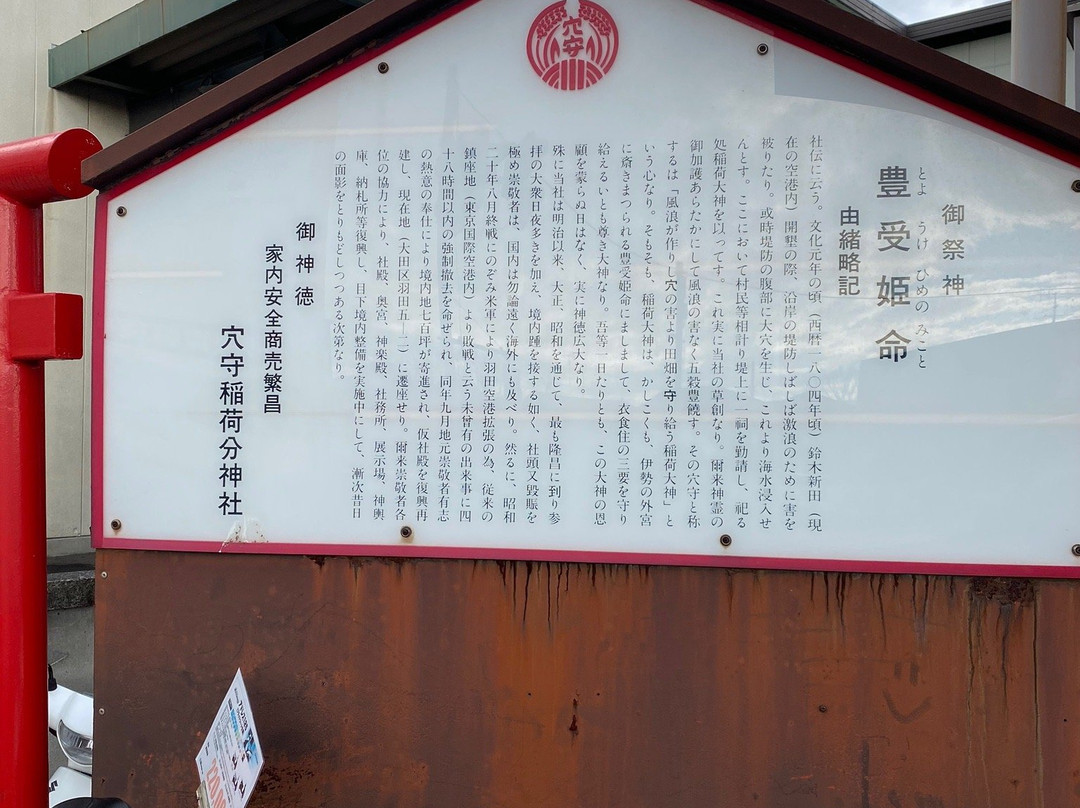 穴安
御祭神
とよ うけ ひめの みこと
豊受姫命
由緒略記
社伝に云う。文化元年の頃（西暦一八〇四年頃）鈴木新田（現
在の空港内）開墾の際、沿岸の堤防しばしば激浪のために害を
被りたり。或時堤防の腹部に大穴を生じ、これより海水浸入せ
んとす。ここにおいて村民等相計り堤上に一祠を勤請し、祀る
処稲荷大神を以ってす。これ実に当社の草創なり。爾来神霊の
御加護あらたかにして風浪の害なく五穀豊饒す。その穴守と称
するは「風浪が作りし穴の害より田畑を守り給う稲荷大神」と
いう心なり。そもそも、稲荷大神は、かしこくも、伊勢の外宮
に斎きまつられる豊受姫命にましまして、衣食住の三要を守り
給えるいとも尊き大神なり。吾等一日たりとも、この大神の恩
顧を蒙らぬ日はなく、実に神徳広大なり。
殊に当社は明治以来、大正、昭和を通じて、最も隆昌に到り参
拝の大衆日夜多きを加え、境内踵を接する如く、社頭又毀賑を
極め崇敬者は、国内は勿論遠く海外にも及べり。然るに、昭和
二十年八月終戦にのぞみ米軍により羽田空港拡張の為、従来の
鎮座地（東京国際空港内）より敗戦と云う未曾有の出来事に四
十八時間以内の強制撤去を命ぜられ、同年九月地元崇敬者有志
の熱意の奉仕により境内地七百坪が寄進され、仮社殿を復興再
建し、現在地（大田区羽田五－二）に遷座せり。爾来崇敬者各
位の協力により、社殿、奥宮、神楽殿、社務所、展示場、神輿
庫、納札所等復興し、目下境内整備を実施中にして、漸次昔日
の面影をとりもどしつつある次第なり。
御神徳
家内安全商売繁昌
穴守稲荷分神社